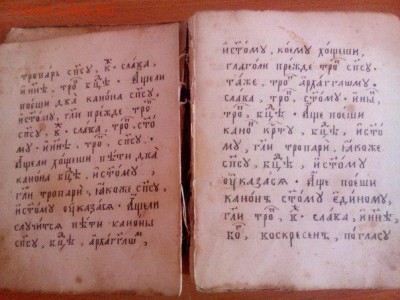 тропарь сп҃су, в҃. слава,
и҆ нн҃ѣ, тро҃, бц҃ѣ. Аще ли
поеши два̀ канѡна сп҃су,
и҆ ст҃ому, гл҃и прежде тро҃
сп҃су, в҃. слава, тро҃, ст҃о
му. и҆ нн҃ѣ, тро҃, сп҃су.
Аще ли хощеши пѣти два̀
канѡна бц҃ѣ, и҆ ст҃ому
гл҃и тропари, ꙗкоже сп҃су,
и҆ ст҃ому ᲂу҆казасѧ. Аще ли
случитсѧ пѣти канѡны
сп҃су, бц҃ѣ, а҆рха́гг҃лѡм,
и҆ ст҃ому, коему хощеши,
глаголи прежде тро҃ сп҃су.
таже, тро҃ а҆рха́гг҃лѡму.
слава, тро҃, ст҃ому. и҆ нн҃ѣ,
тро҃, бц҃ѣ. Аще поеши
кано҃ крт҃у, бц҃ѣ, и҆ ст҃о
му, гл҃и тропари, ꙗкоже
сп҃су, бц҃ѣ, и҆ ст҃ому
ᲂу҆казасѧ. Аще поеши
канѡнъ ст҃ому є҆диному,
гл҃и тро҃, в҃. слава, и҆ нн҃ѣ,
бо҃, воскресенъ, по гласу